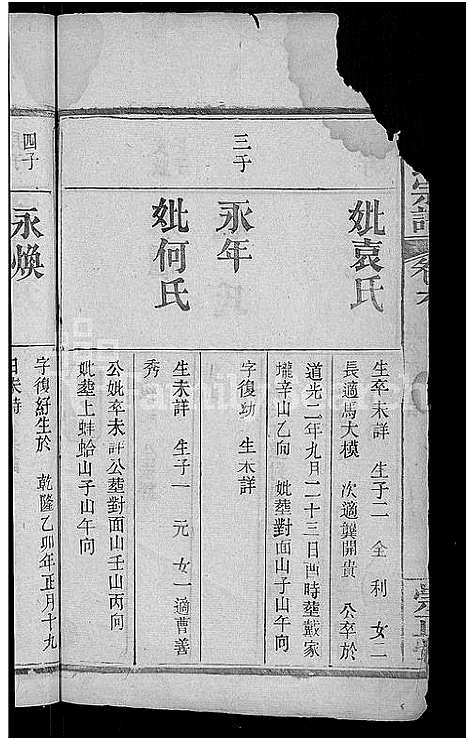 宗譜
卷六
妣袁氏
生卒未詳 生子二 全 利 女二
長適馬大模 次適龔開貴 公卒於
道光二年九月二十三日酉時葬戴家
壠辛山乙向 妣葬對面山子山午向
三子
永年
字復功 生未詳
妣何氏
生未詳 生子一 元 女一適曹善
秀
公妣卒未詳公葬對面山壬山丙向
妣葬上蚌蛤山子山午向
四子
永煥
字復紓生於 乾隆乙卯年正月十九
日未時